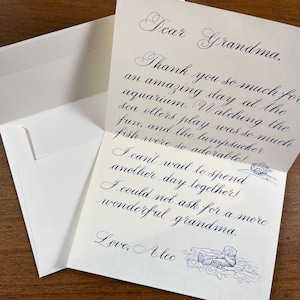 Dear Grandma,
Thank you so much for
an amazing day at the
aquarium. Watching the
sea otters play was so much
fun, and the lumpsucker
fish were so adorable!
I can't wait to spend
another day together!
I could not ask for a more
wonderful grandma.
Love, Alec